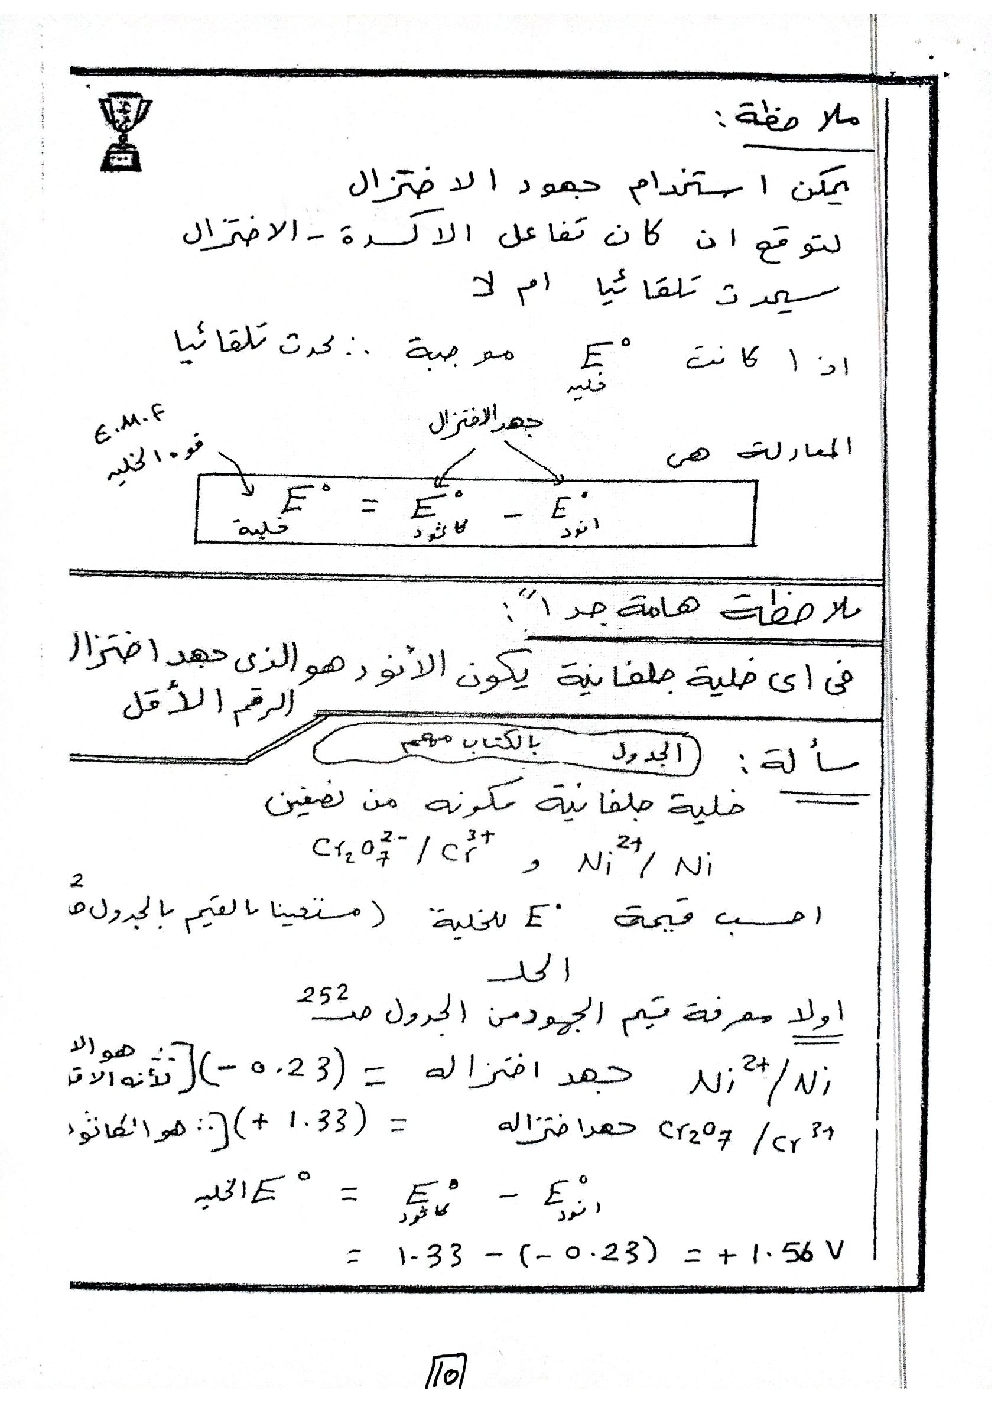 ملاحظة :
يمكن استخدام جهود الاختزال
لتوقع ان كان تفاعل الاكسدة - الاختزال
سيحدث تلقائيا ام لا
اذا كانت E° خلية موجبة ∴ تحدث تلقائيا
المعادلة هى
جهد الاختزال
E.M.F
قوه الخليه
E° خلية = E° كاثود - E° انود
ملاحظة هامة جدا" :
فى اى خلية جلفانية يكون الأنود هو الذى جهد اختزال
الرقم الأقل
الجدول بالكتاب مهم
سألة :
خلية جلفانية مكونه من نصفين
Ni²⁺/Ni و Cr₂O₇²⁻/Cr³⁺
احسب قيمة E° للخلية (مستعينا بالقيم بالجدول ص 2
الحل
اولا معرفة قيم الجهود من الجدول صـ 252
Ni²⁺/Ni جهد اختزاله = (-0.23) [∴ هو الا
لأنه الاق
Cr₂O₇/Cr³⁺ جهد اختزاله = (+1.33) [∴ هو الكاثود
E° الخليه = E° كاثود - E° انود
= 1.33 - (-0.23) = +1.56 V
10